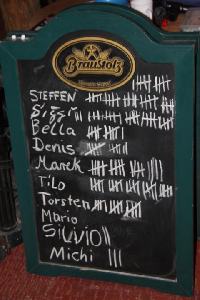 Braustolz
STEFFEN
Siggi
Bella
Denis
Marek
Tilo
Torsten
Mario
Silvio ||
Michi |||